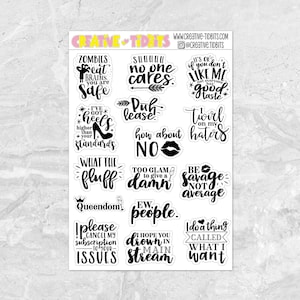 CREATIVE TIDBITS
WWW.CREATIVE-TIDBITS.COM
@CREATIVE-TIDBITS
ZOMBIES
eat
BRAINS
you are
Safe
SHHHHH
no one
cares
IT'S OK if
you don't
LIKE ME
not everyone
has
good
taste
I'VE
GOT
heels
higher than
your
standards
Puh
lease!
how about
NO
Twirl
on my
haters
WHAT THE
fluff
TOO GLAM
to give a
damn
BE
Savage
NOT
average
Queendom
EW,
people.
I please
CANCEL MY
subscription
TO YOUR
ISSUES
I HOPE YOU
drown IN
MAIN
Stream
I do a thing
CALLED
WHAT I
want